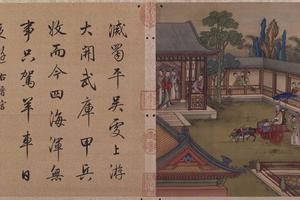 滅蜀平吳上游
大開武庫甲兵
收而今四海渾無
事只駕羊車日
遊 右晉宮